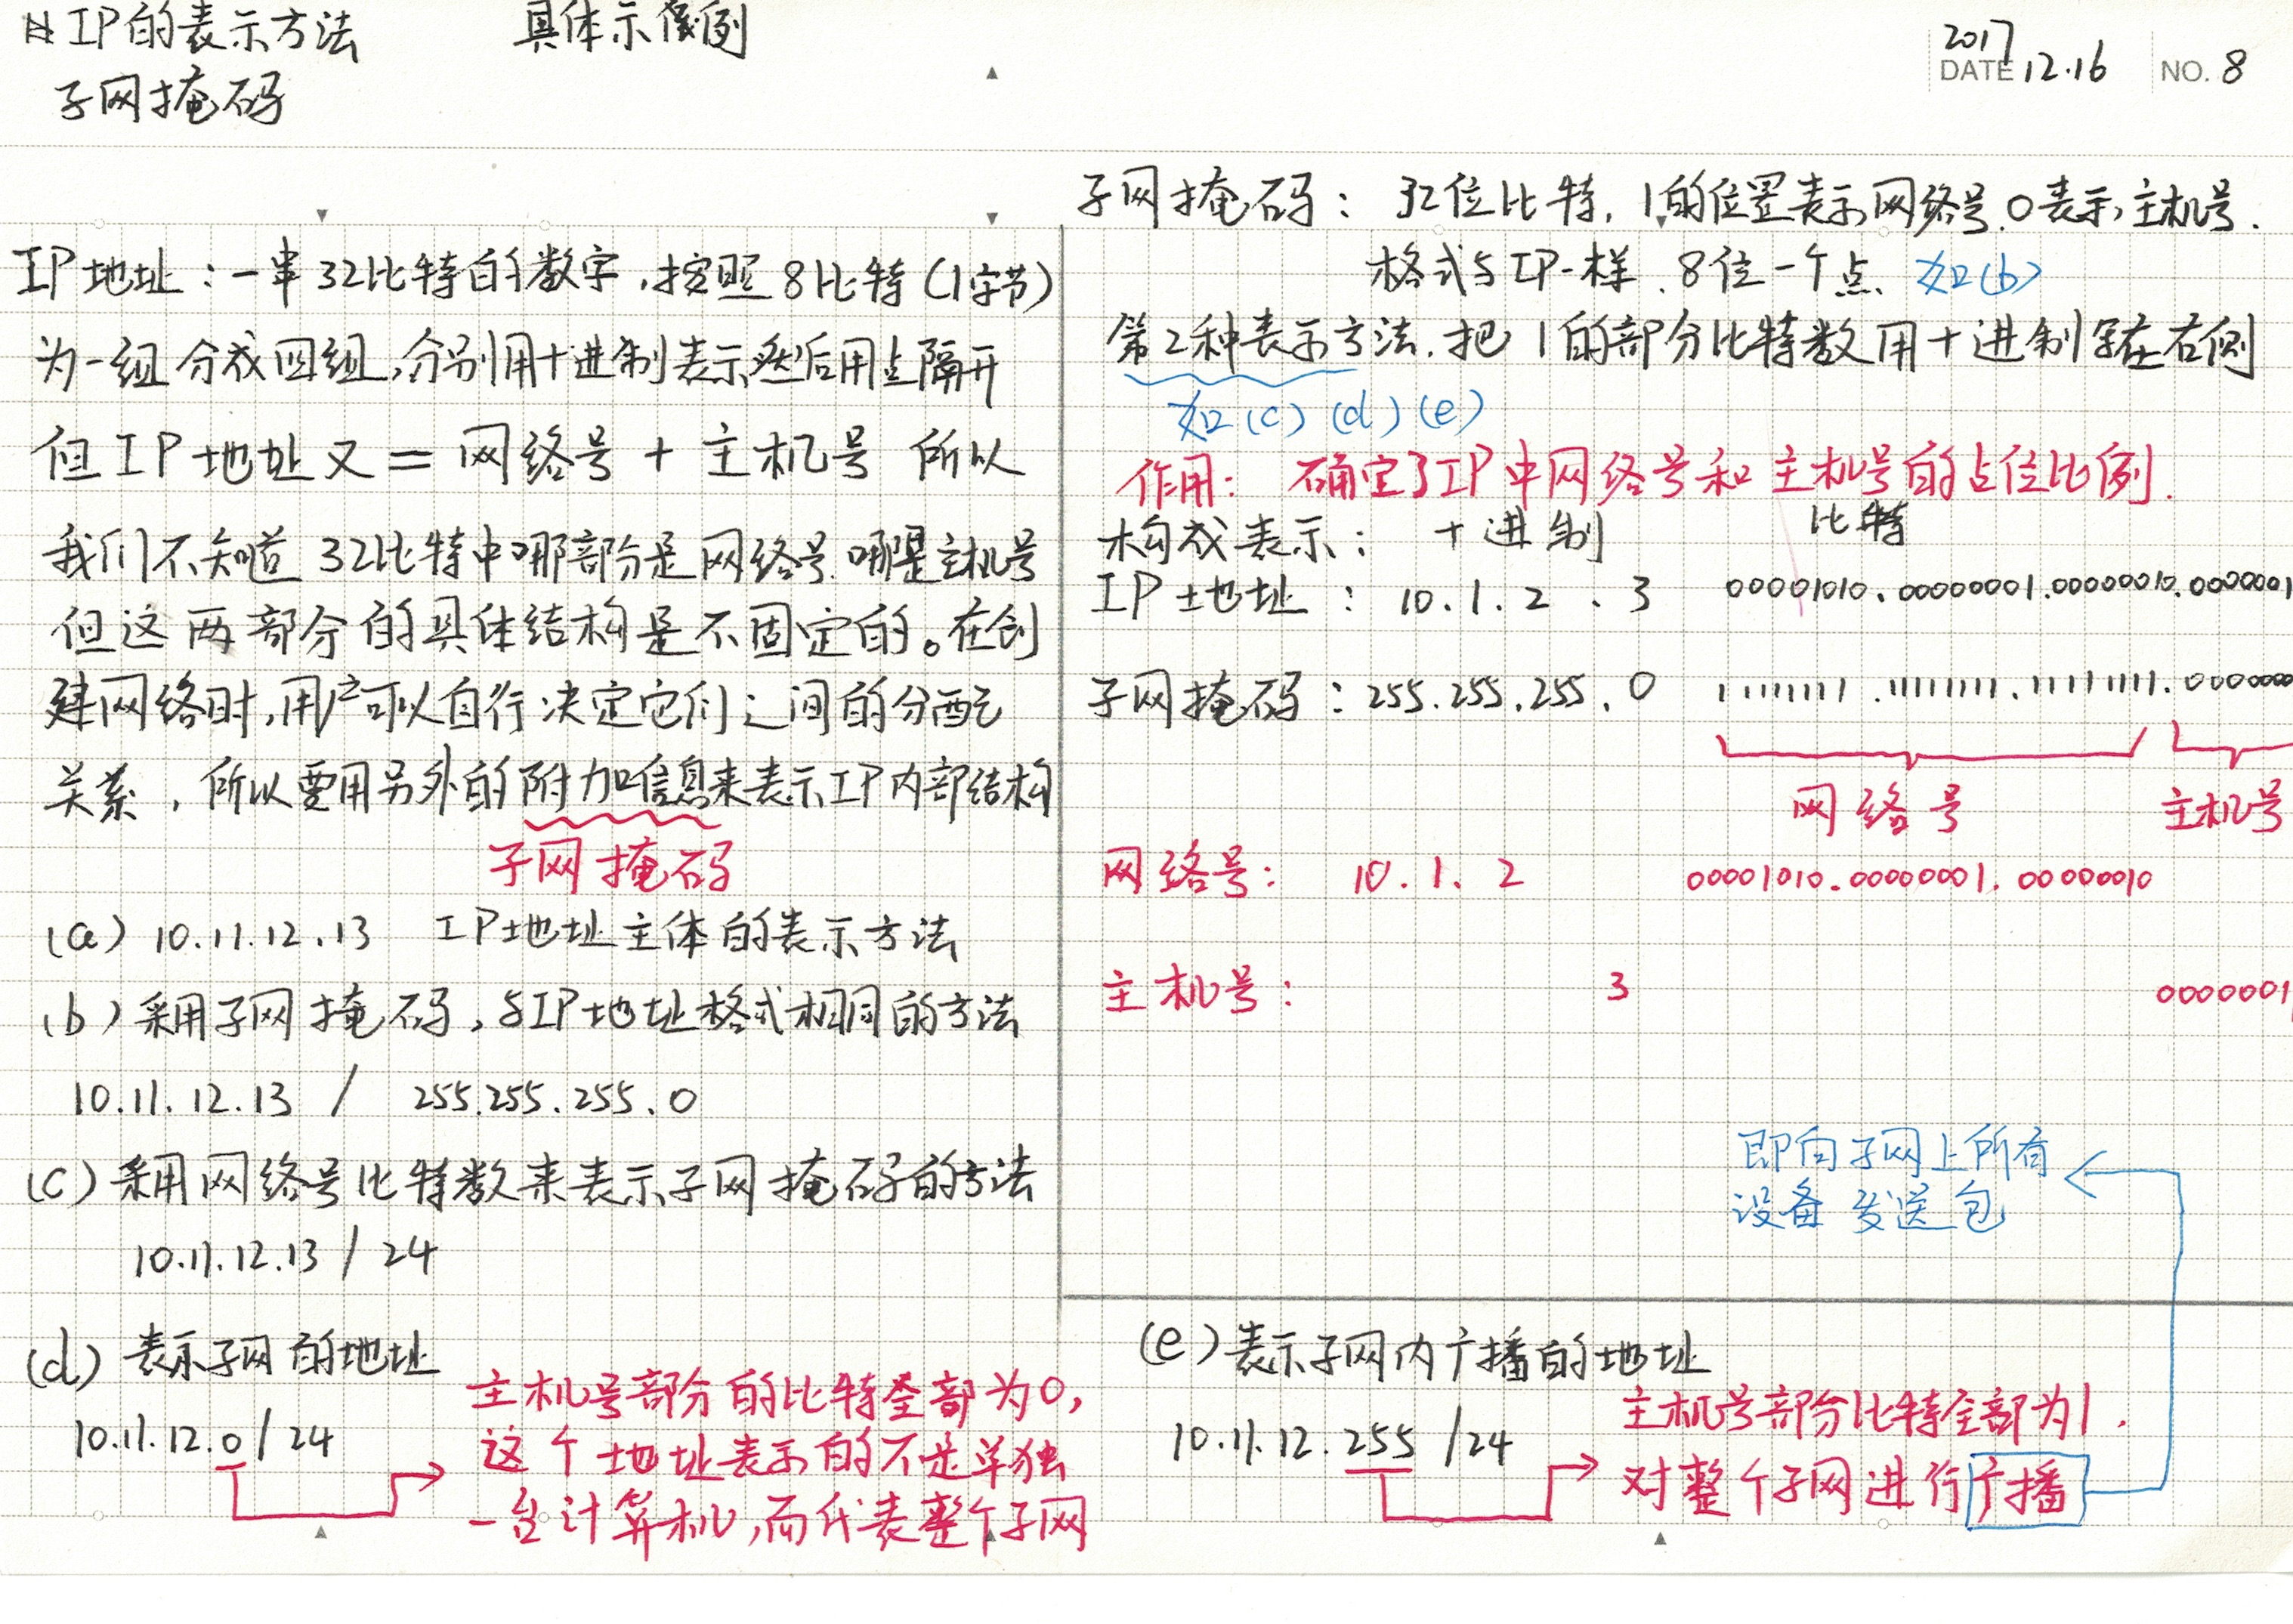 IP的表示方法 具体示例
子网掩码
2017
DATE 12.16 NO. 8
IP地址:一串32比特的数字,按照8比特(1字节)
为一组分成四组,分别用十进制表示然后用点隔开
但IP地址又=网络号+主机号 所以
我们不知道32比特中哪部分是网络号.哪是主机号
但这两部分的具体结构是不固定的。在创
建网络时,用户可以自行决定它们之间的分配
关系,所以要用另外的附加信息来表示IP内部结构
子网掩码
(a) 10.11.12.13 IP地址主体的表示方法
(b) 采用子网掩码,与IP地址格式相同的方法
10.11.12.13 / 255.255.255.0
(c) 采用网络号比特数来表示子网掩码的方法
10.11.12.13 / 24
(d) 表示子网的地址
10.11.12.0/24
主机号部分的比特全部为0,
这个地址表示的不是单独
一台计算机,而代表整个子网
子网掩码: 32位比特,1的位置表示网络号.0表示主机号.
格式与IP一样.8位一个点 如(b)
第2种表示方法.把1的部分比特数用十进制写在右侧
如(c) (d) (e)
作用: 确定了IP中网络号和主机号的占位比例.
构成表示: 十进制 比特
IP地址: 10.1.2.3 00001010.00000001.00000010.0000001
子网掩码:255.255.255.0 11111111.11111111.11111111.0000000
网络号 主机号
网络号: 10.1.2 00001010.00000001.00000010
主机号: 3 0000001
即向子网上所有
设备发送包
(e) 表示子网内广播的地址
10.11.12.255 /24
主机号部分比特全部为1.
对整个子网进行广播